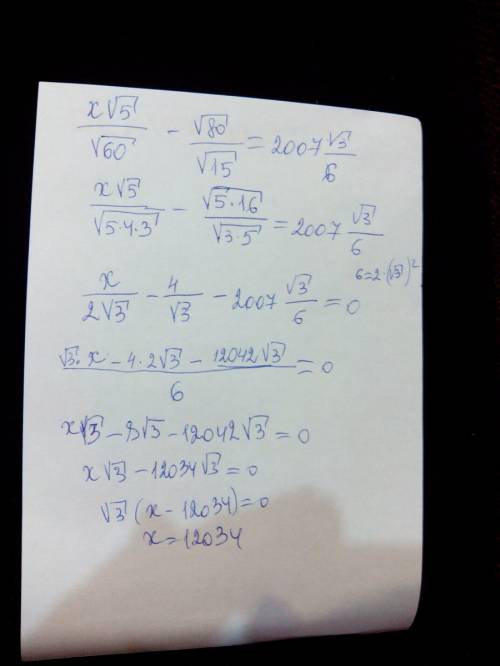 x√5/√60 − √80/√15 = 2007 √3/6
x√5/√(5·4·3) − √(5·16)/√(3·5) = 2007 √3/6
6=2·(√3)²
x/(2√3) − 4/√3 − 2007 √3/6 = 0
(√3·x − 4·2√3 − 12042√3)/6 = 0
x√3 − 8√3 − 12042√3 = 0
x√3 − 12034√3 = 0
√3 (x − 12034) = 0
x = 12034